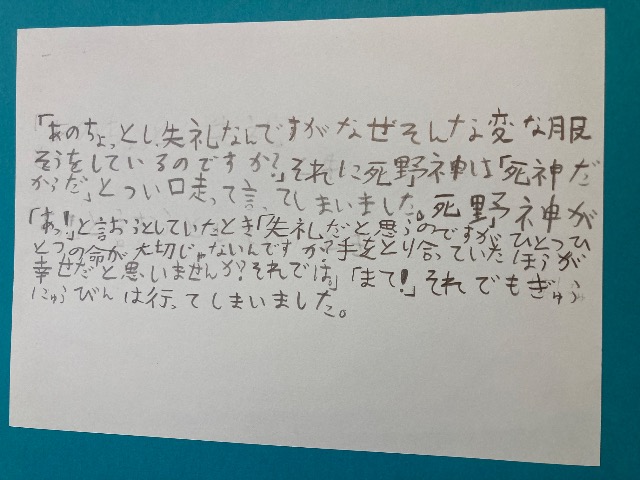 「あのちょっとし失礼なんですがなぜそんな変な服
そうをしているのですか？」それに死野神は「死神だ
からだ」とつい口走って言ってしまいました。死野神が
「あっ！」と言おうとしていたとき「失礼だと思うのですが、ひとつひ
とつの命が大切じゃないんですか？手をとり合っていたほうが
幸せだと思いませんか？それでは。」「まて！」それでもぎゅう
にゅうびんは行ってしまいました。